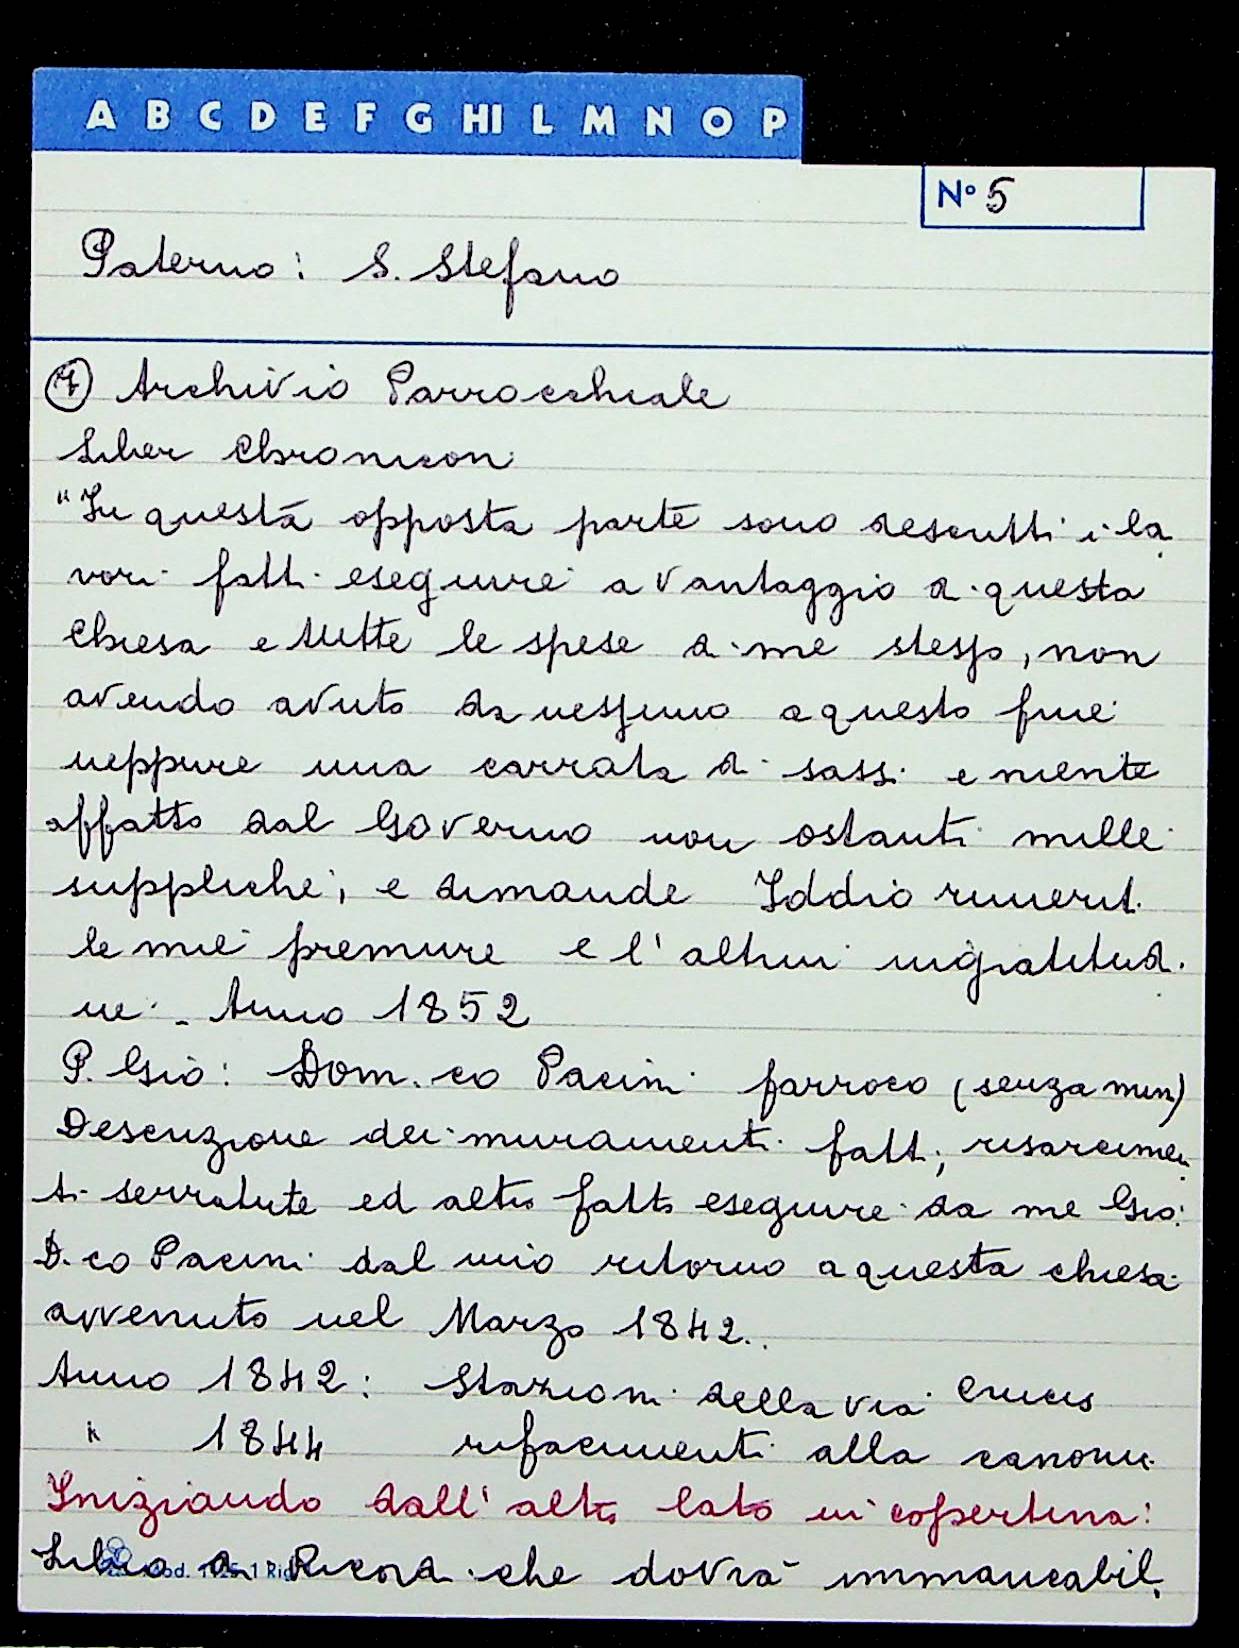 A B C D E F G HI L M N O P
N° 5
Paterno: S. Stefano
Archivio Parrocchiale
Liber Chronicon
"In questa opposta parte sono descritti i la
vori fatti eseguire a vantaggio di questa
Chiesa e tutte le spese di me stesso, non
avendo avuto da nessuno a questo fine
neppure una carrata di sassi e niente
affatto dal Governo non ostanti mille
suppliche, e dimande Iddio rimeriti
le mie premure e l'altrui ingratitudi
ne. Anno 1852
P. Gio: Dom.co Pacini parroco (senza min)
Descrizione dei muramenti fatti, risarcimen
ti serrature ed altro fatto eseguire da me Gio:
D.co Pacini dal mio ritorno a questa chiesa
avvenuto nel Marzo 1842.
Anno 1842: Stazioni della via crucis
" 1844 rifacimenti alla canoni
Iniziando dall'altro lato in copertina:
Libro di Ricordi che dovrà immancabil